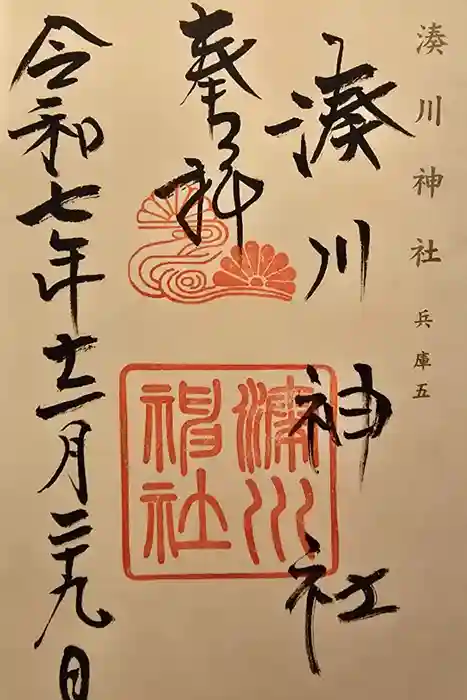 湊川神社 兵庫五
湊川神社
奉拝
湊川
神社
令和七年十二月二十九日